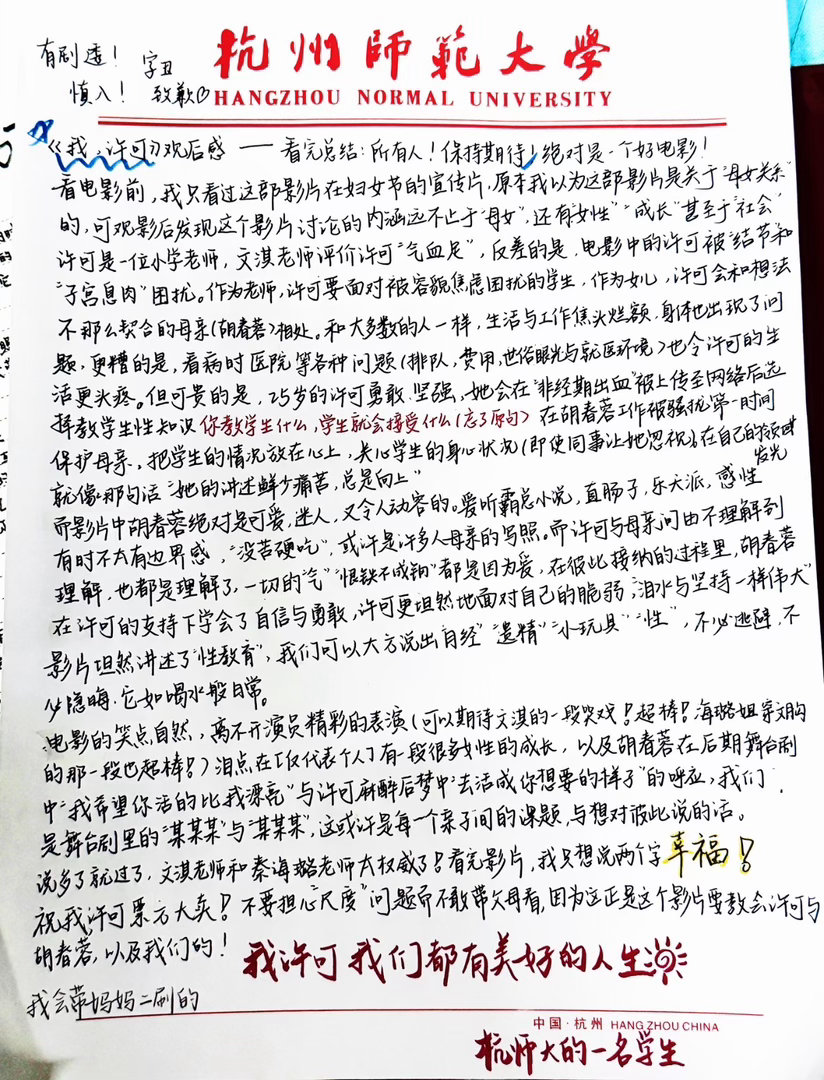 有剧透！
慎入！
字丑
致歉
杭州師範大學
HANGZHOU NORMAL UNIVERSITY
《我，许可》观后感 —— 看完总结：所有人！保持期待！绝对是一个好电影！
看电影前，我只看过这部影片在妇女节的宣传片，原本我以为这部影片是关于“母女关系”
的，可观影后发现这个影片讨论的内涵远不止于“母女”，还有“女性”“成长”甚至于“社会”
许可是一位小学老师，文淇老师评价许可“气血足”，反差的是，电影中的许可被“结节和
“子宫息肉”困扰。作为老师，许可要面对被容貌焦虑困扰的学生，作为女儿，许可会和想法
不那么契合的母亲（胡春蓉）相处。和大多数的人一样，生活与工作焦头烂额，身体也出现了问
题，更糟的是，看病时医院等各种问题（排队，费用，世俗眼光与就医环境）也令许可的生
活更头疼。但可贵的是，25岁的许可勇敢、坚强，她会在“非经期出血”被上传至网络后选
择教学生性知识 你教学生什么，学生就会接受什么（忘了原句） 在胡春蓉工作被骚扰第一时间
保护母亲，把学生的情况放在心上，关心学生的身心状况（即使同事让她忽视），在自己的领域发光
就像那句话“她的讲述鲜少痛苦，总是向上”
而影片中胡春蓉绝对是可爱，迷人，又令人动容的。爱听霸总小说，直肠子，乐天派，感性
有时不太有边界感，“没苦硬吃”，或许是许多人母亲的写照。而许可与母亲间由不理解到
理解，也都是理解了，一切的“气”“恨铁不成钢”都是因为爱，在彼此接纳的过程里，胡春蓉
在许可的支持下学会了自信与勇敢，许可更坦然地面对自己的脆弱，“泪水与坚持一样伟大”
影片坦然讲述了“性教育”，我们可以大方说出“月经”“遗精”“小玩具”“性”，不必逃避，不
必隐晦，它如喝水般日常。
电影的笑点自然，离不开演员精彩的表演（可以期待文淇的一段哭戏！超棒！海璐姐
的那一段也超棒！）泪点在[仅代表个人]有一段很多女性的成长，以及胡春蓉在后期舞台剧
中“我希望你活的比我漂亮”与许可麻醉后梦中“去活成你想要的样子”的呼应，我们
是舞台剧里的“某某某”与“某某某”，这或许是每一个亲子间的课题，与想对彼此说的话。
说多了就过了，文淇老师和秦海璐老师太权威了！看完影片，我只想说两个字 幸福！
祝我许可票房大卖！不要担心“尺度”问题而不敢带父母看，因为这正是这个影片要教会许可与
胡春蓉，以及我们的！
我许可 我们都有美好的人生
我会带妈妈二刷的
中国·杭州 HANG ZHOU CHINA
杭师大的一名学生